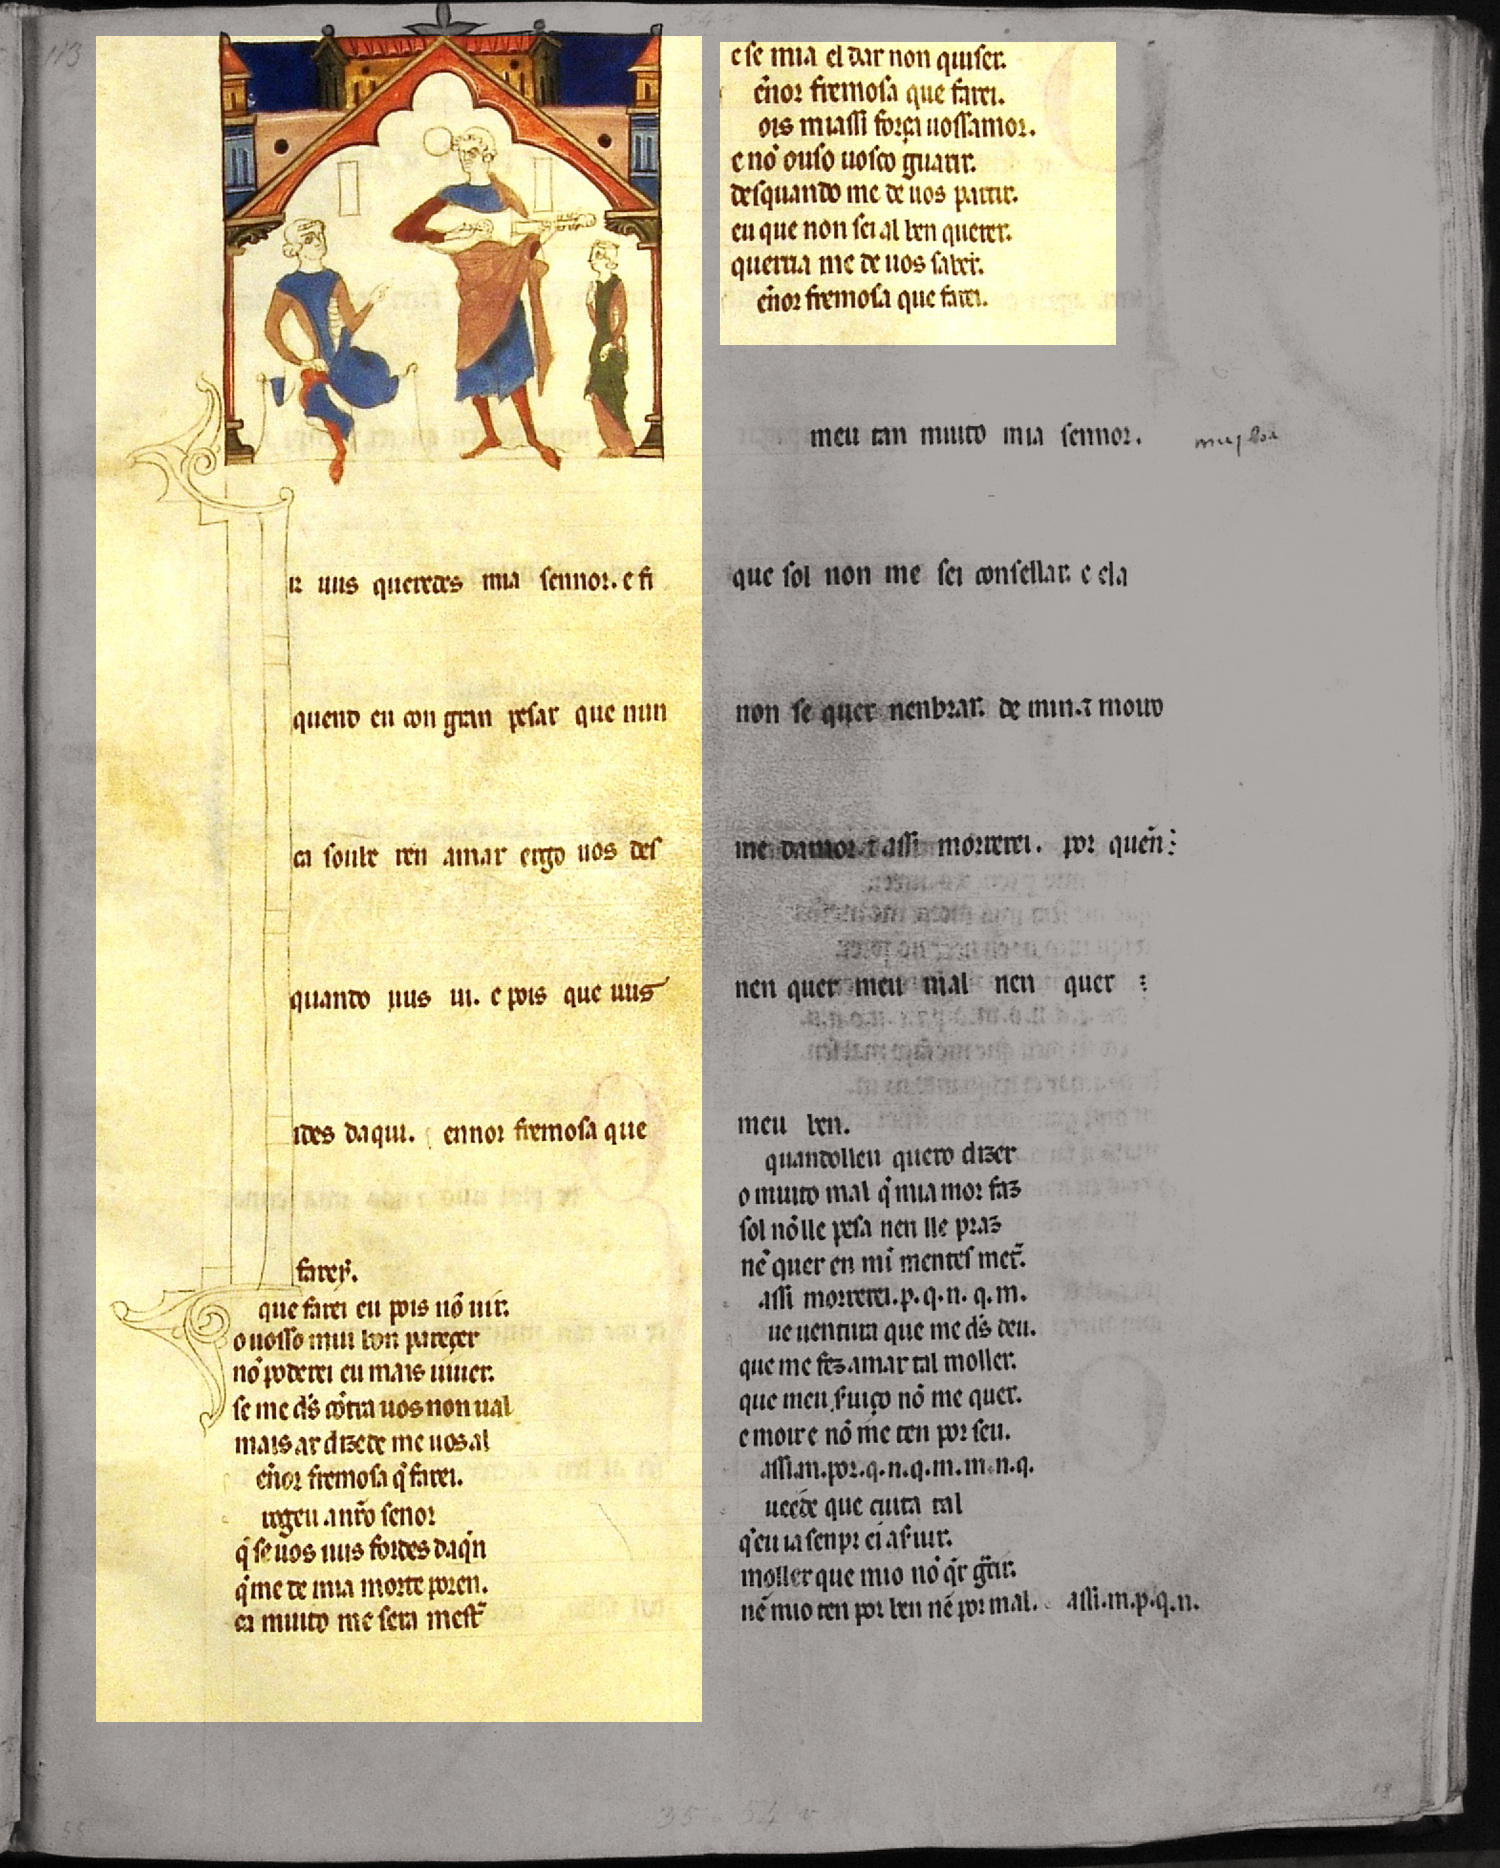 ir uus queredes mia sennor. e fi
quend eu con gran pesar que nun
ca soube ren amar ergo uos des
quando uus ui. e pois que uus
ides daqui. ennor fremosa que
farey.
que farei eu pois nõ uir.
o uosso mui bon pareçer
nõ poderei eu mais uiuer.
se me d̃s cõtra uos non ual
mais ar dizede me uos al
eñor fremosa q̃ farei.
rogeu a nr̃o senor
q̃ se uos uus fordes daq̃n
q̃ me de mia morte poren.
ca muito me sera mest̃
e se mia el dar non quiser.
eñor fremosa que farei.
ois miassi força uossamor.
e nõ ouso uosco guarir.
desquando me de uos partir.
eu que non sei al ben querer.
querria me de uos saber.
eñor fremosa que farei.
meu tan muito mia sennor.
que sol non me sei consellar. e ela
non se quer nenbrar. de min. ⁊ mouro
me damor. ⁊ assi morrerei. por queñ:
nen quer meu mal nen quer :
meu ben.
quandolleu quero dizer
o muito mal q̃ mia mor faz
sol nõ lle pesa nen lle praz
nẽ quer en mĩ mentes met̃.
assi morrerei. p. q. n. q. m.
ue uentura que me d̃s deu.
que me fez amar tal moller.
que meu s̃uiço nõ me quer.
e moir e nõ me ten por seu.
assi.m.por.q.n.q.m.m.n.q.
ueede que cuita tal
q̃eu ia senpr ei a s̃uir.
moller que mio nõ q̃r g̃cir.
nẽ mio ten por ben nẽ por mal. assi.m.p.q.n.